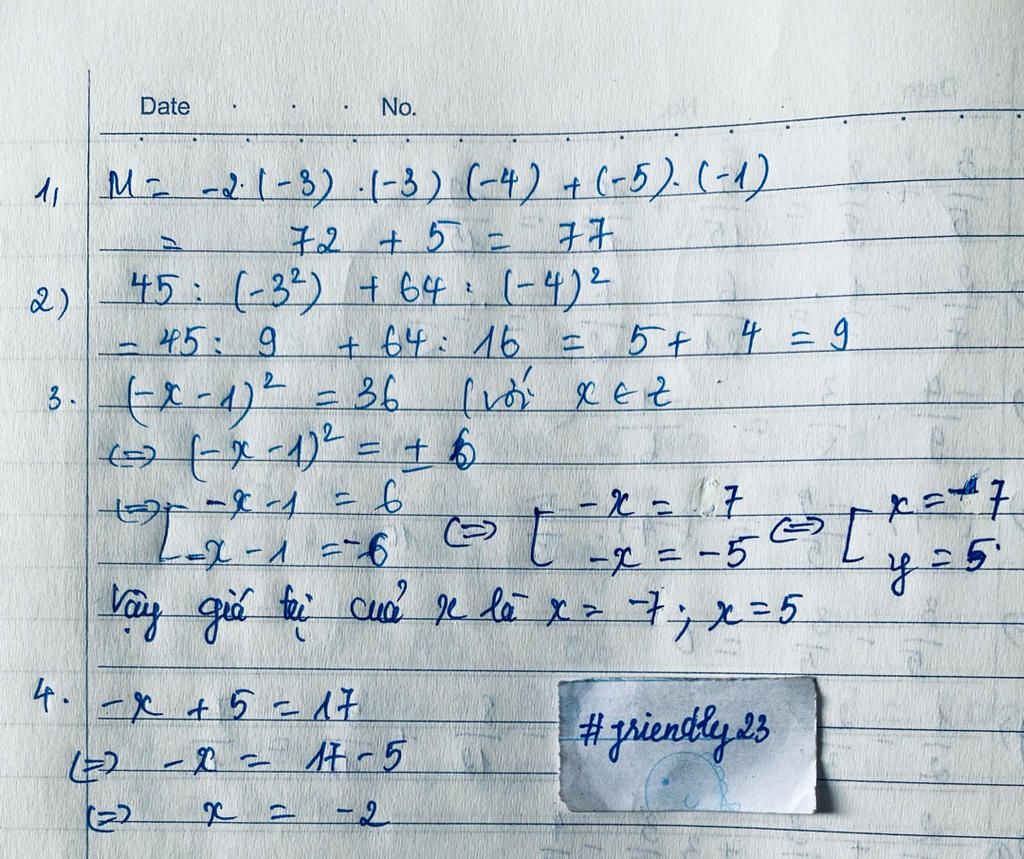 Date . . . No.
1, M = -2.(-3) .(-3) (-4) + (-5). (-1)
= 72 + 5 = 77
2) 45 : (-3²) + 64 : (-4)²
= 45 : 9 + 64 : 16 = 5 + 4 = 9
3. (-x - 1)² = 36 (với x ∈ Z
<=> (-x - 1)² = ± 6
<=> [ -x - 1 = 6 <=> [ -x = 7 <=> [ x = -7
-x - 1 = -6 -x = -5 y = 5.
Vậy giá tị cuả x là x = -7 ; x = 5
4. -x + 5 = 17
<=> -x = 17 - 5
<=> x = -2
#friendly23